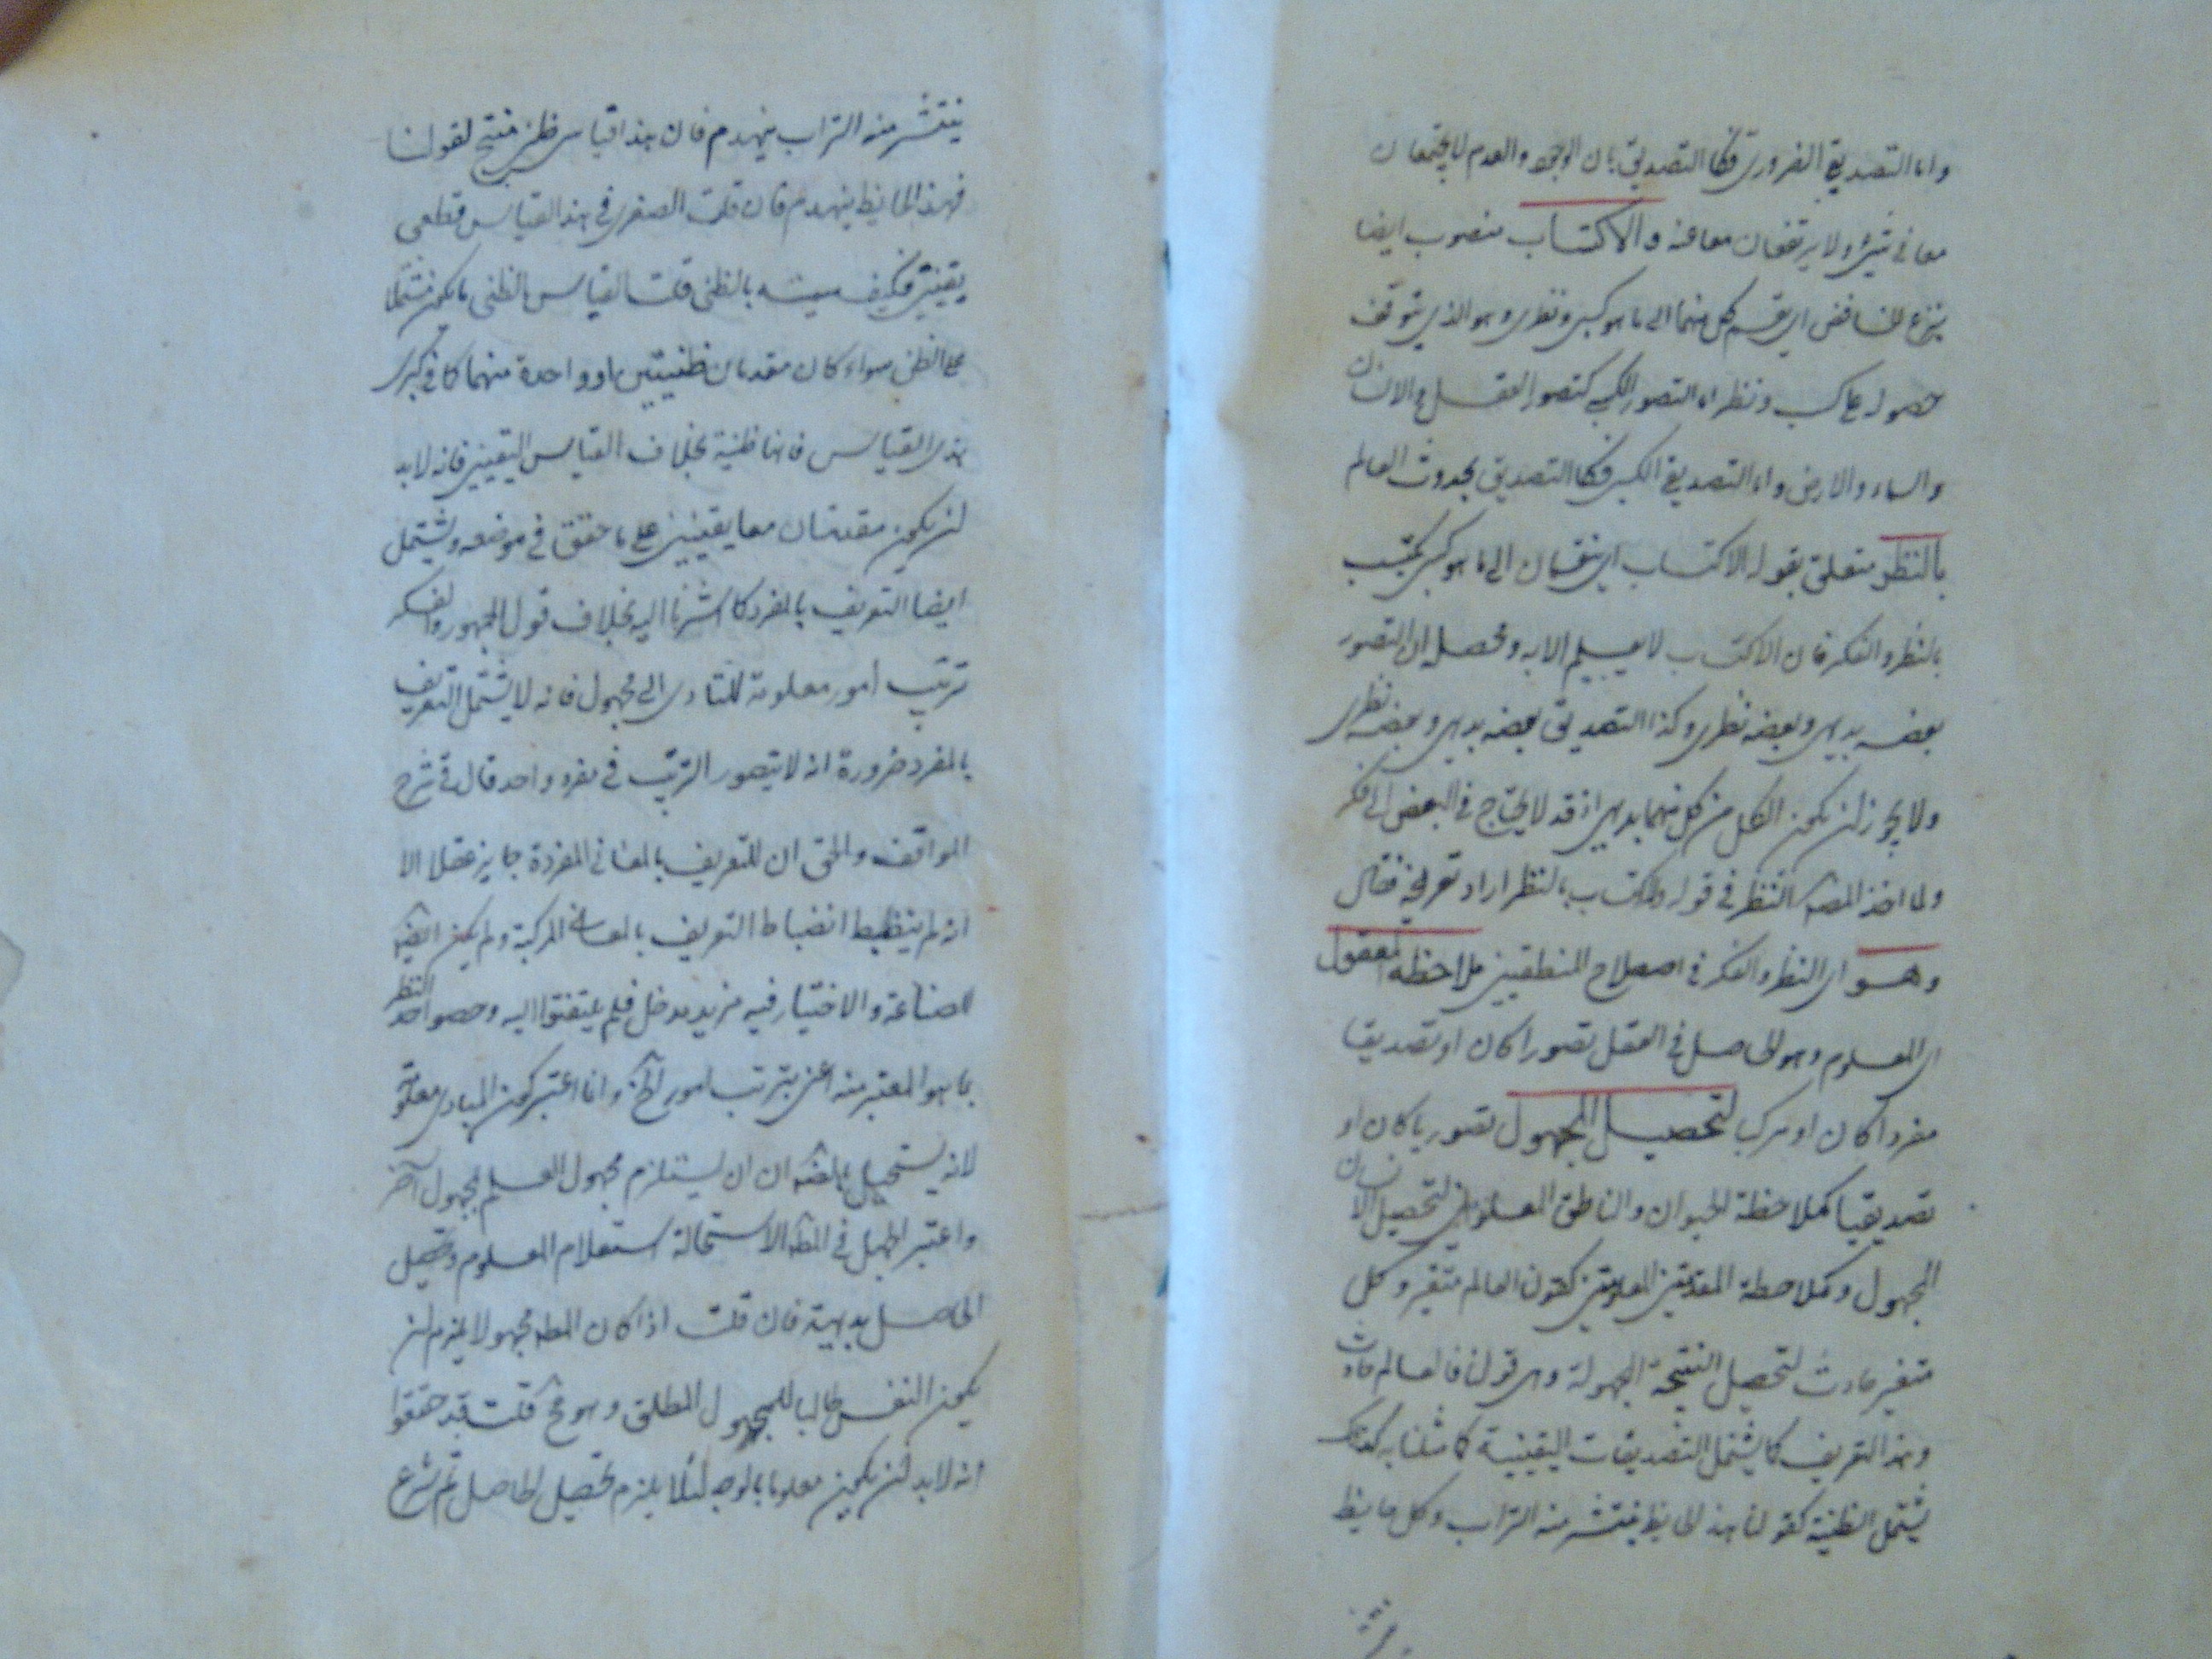 واما التصديق الضروري فكالتصديق بان الوجود والعدم لا يجتمعان
معا في شيء ولا يرتفعان معا عنه والاكتساب منصوب ايضا
بنزع الخافض اي يقسم كل منهما الى ما هو كسبي ونظري وهو الذي يتوقف
حصوله على كسب ونظر اما التصور الكسبي كتصور العقل والانسان
والسماء والارض واما التصديق الكسبي فكالتصديق بحدوث العالم
بالنظر متعلق بقوله الاكتساب اي ينقسمان الى ما هو كسبي يكتسب
بالنظر والفكر فان الاكتساب لا يتم الا به ومحصله ان التصور
بعضه بديهي وبعضه نظري وكذا التصديق بعضه بديهي وبعضه نظري
ولا يجوز ان يكون الكل من كل منهما بديهي اذ قد لا يحتاج في البعض الى فكر
ولما اخذ المصه النظر في قوله والاكتساب بالنظر اراد تعريفه فقال
وهو اي النظر والفكر في اصطلاح المنطقيين ملاحظة المعقول
اي المعلوم وهو الحاصل في العقل تصورا كان او تصديقا
مفردا كان او مركب لتحصيل المجهول تصوريا كان او
تصديقيا كملاحظة الحيوان والناطق المعلومين لتحصيل الانسان
المجهول وكملاحظة المقدمتين المعلومتين كقولنا العالم متغير وكل
متغير حادث لتحصيل النتيجة المجهولة وهي قولنا فالعالم حادث
وهذا التعريف كما يشتمل التصديقات اليقينية كما مثلنا به كذلك
يشتمل الظنية كقولنا هذا الحايط ينتشر منه التراب وكل حايط
ينتشر منه التراب ينهدم فان هذا قياس ظني منتج لقولنا
فهذا الحايط ينهدم فان قلت الصغرى في هذا القياس قطعي
يقيني فكيف سميته بالظني قلت القياس الظني ما يكون مشتملا
على الظن سواء كان مقدمتان ظنيتين او واحدة منهما كما في كبرى
هذا القياس فانها ظنية بخلاف القياس اليقيني فانه لا بد
ان يكون مقدمتان معا يقينين على ما حقق في موضعه ويشتمل
ايضا التعريف بالمفرد كما اشرنا اليه بخلاف قول الجمهور والفكر
ترتيب امور معلومة للتادي الى مجهول فانه لا يشتمل التعريف
بالمفرد ضرورة انه لا يتصور الترتيب في مفرد واحد قال في شرح
المواقف والحق ان التعريف بالمعاني المفردة جايز عقلا الا
انه لم ينضبط انضباط التعريف بالمعاني المركبة ولم يكن ايضه
للصناعة والاختيار فيه مزيد مدخل فلم يلتفتوا اليه وخصوا حد النظر
بما هو المعتبر منه اعني بترتيب امور الخ وانما اعتبر كون المبادي معلومة
لانه يستحيل بالضه ان يستلزم مجهول العلم بمجهول آخر
واعتبر الجهل في المطه لاستحالة استعلام المعلوم وتحصيل
الحاصل بديهية فان قلت اذا كان المطه مجهولا يلزم ان
يكون النفس طالبا للمجهول المطلق وهو مح قلت قد حققوا
انه لا بد ان يكون معلوما بالوجه لئلا يلزم تحصيل الحاصل ثم شرع